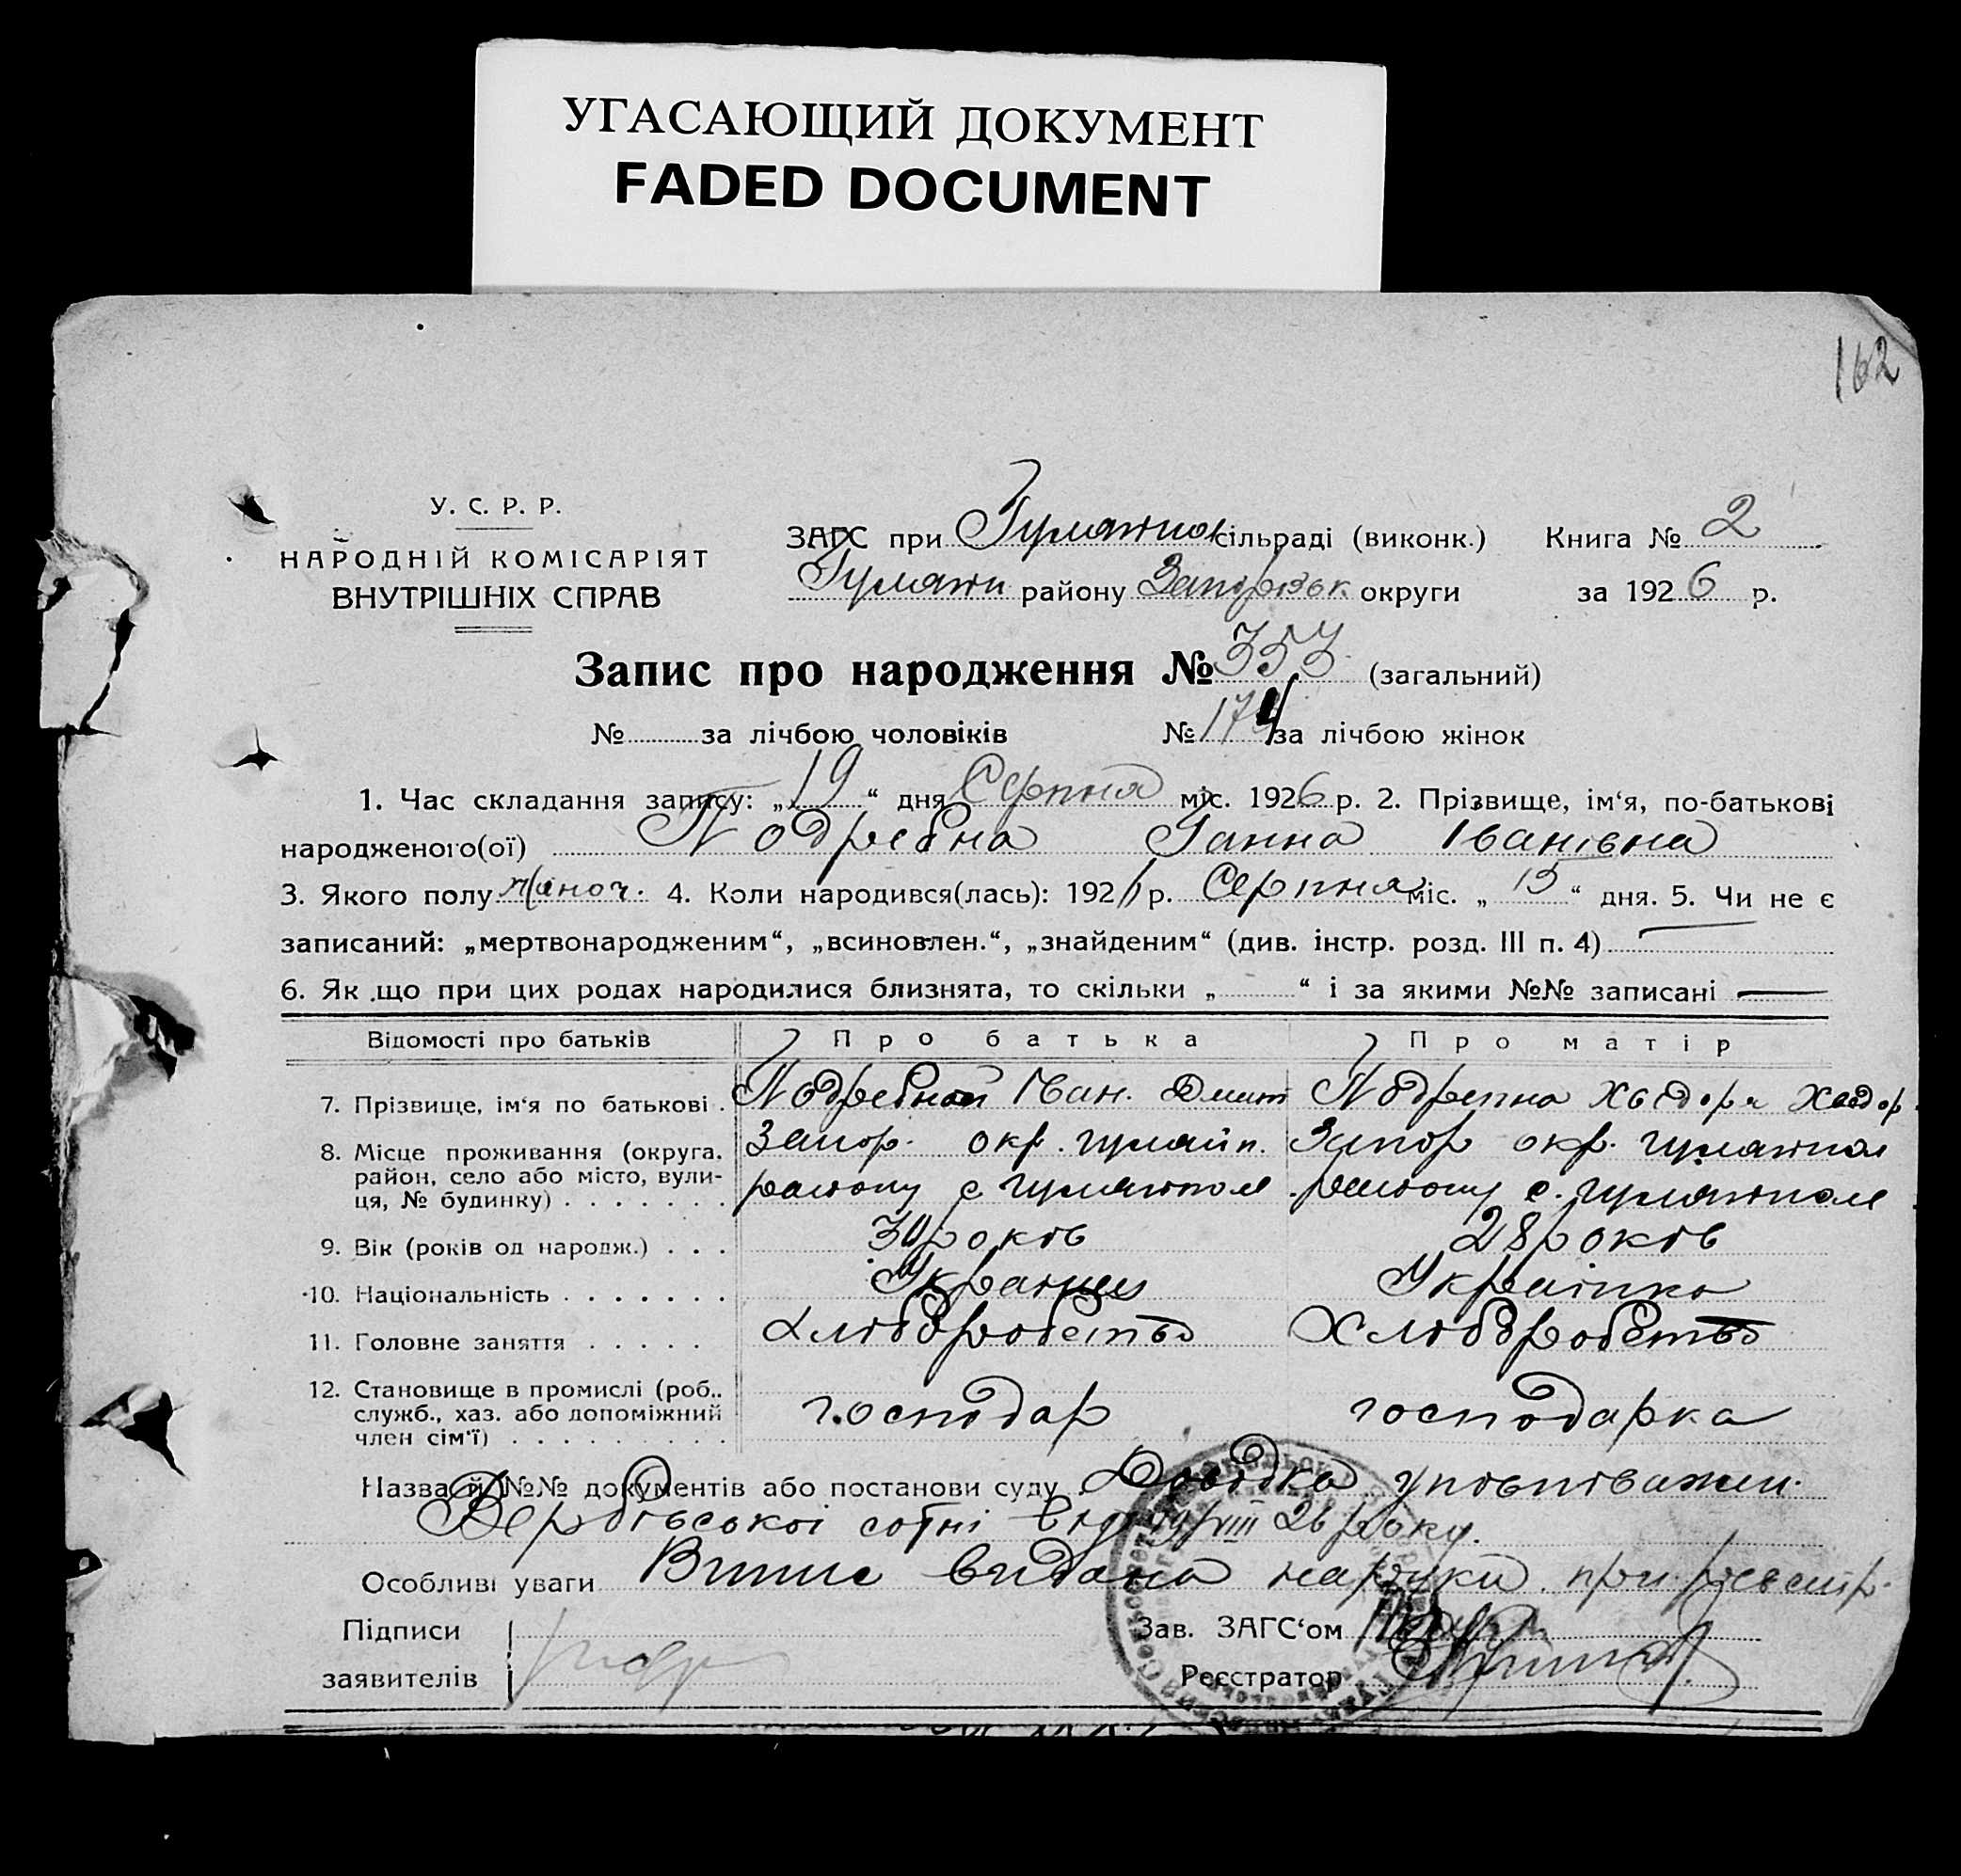 УГАСАЮЩИЙ ДОКУМЕНТ
FADED DOCUMENT
162
У. С. Р. Р.
НАРОДНІЙ КОМІСАРІЯТ
ВНУТРІШНІХ СПРАВ
ЗАГС при Гуляйпол сільраді (виконк.) Книга № 2
Гуляйп району Запорізьк округи за 1926 р.
Запис про народження № 353 (загальний)
№ за лічбою чоловіків № 174 за лічбою жінок
1. Час складання запису: „19“ дня Серпня міс. 1926 р. 2. Прізвище, ім‘я, по-батькові
народженого(ої) Подребна Ганна Іванівна
3. Якого полу жіноч. 4. Коли народився(лась): 1926 р. Серпня міс. „15“ дня. 5. Чи не є
записаний: „мертвонародженим“, „всиновлен.“, „знайденим“ (див. інстр. розд. III п. 4)
6. Як що при цих родах народилися близнята, то скільки „ “ і за якими №№ записані —
Відомості про батьків Про батька Про матір
7. Прізвище, ім‘я по батькові . Подребной Іван. Дмит Подрепна Хведора Хведор.
8. Місце проживання (округа, Запор. окр. Гуляйп. Запор окр. Гуляйпол
район, село або місто, вули- району с Гуляйполе району с. Гуляйполе
ця, № будинку) . . . . . . .
9. Вік (років од народж.) . . . 30 років 28 років
10. Національність . . . . . . . Украінец Украінка
11. Головне заняття . . . . . Хліборобство Хліборобство
12. Становище в промислі (роб.. господар господарка
служб., хаз. або допоміжний
член сім‘ї) . . . . . . . . .
Назва й №№ документів або постанови суду Довідка уповноважен.
Вербівськоі сотні від 19/VIII 26 року.
Особливі уваги Випис видана на руки при реєстр.
Підписи Зав. ЗАГС‘ом
заявителів Реєстратор